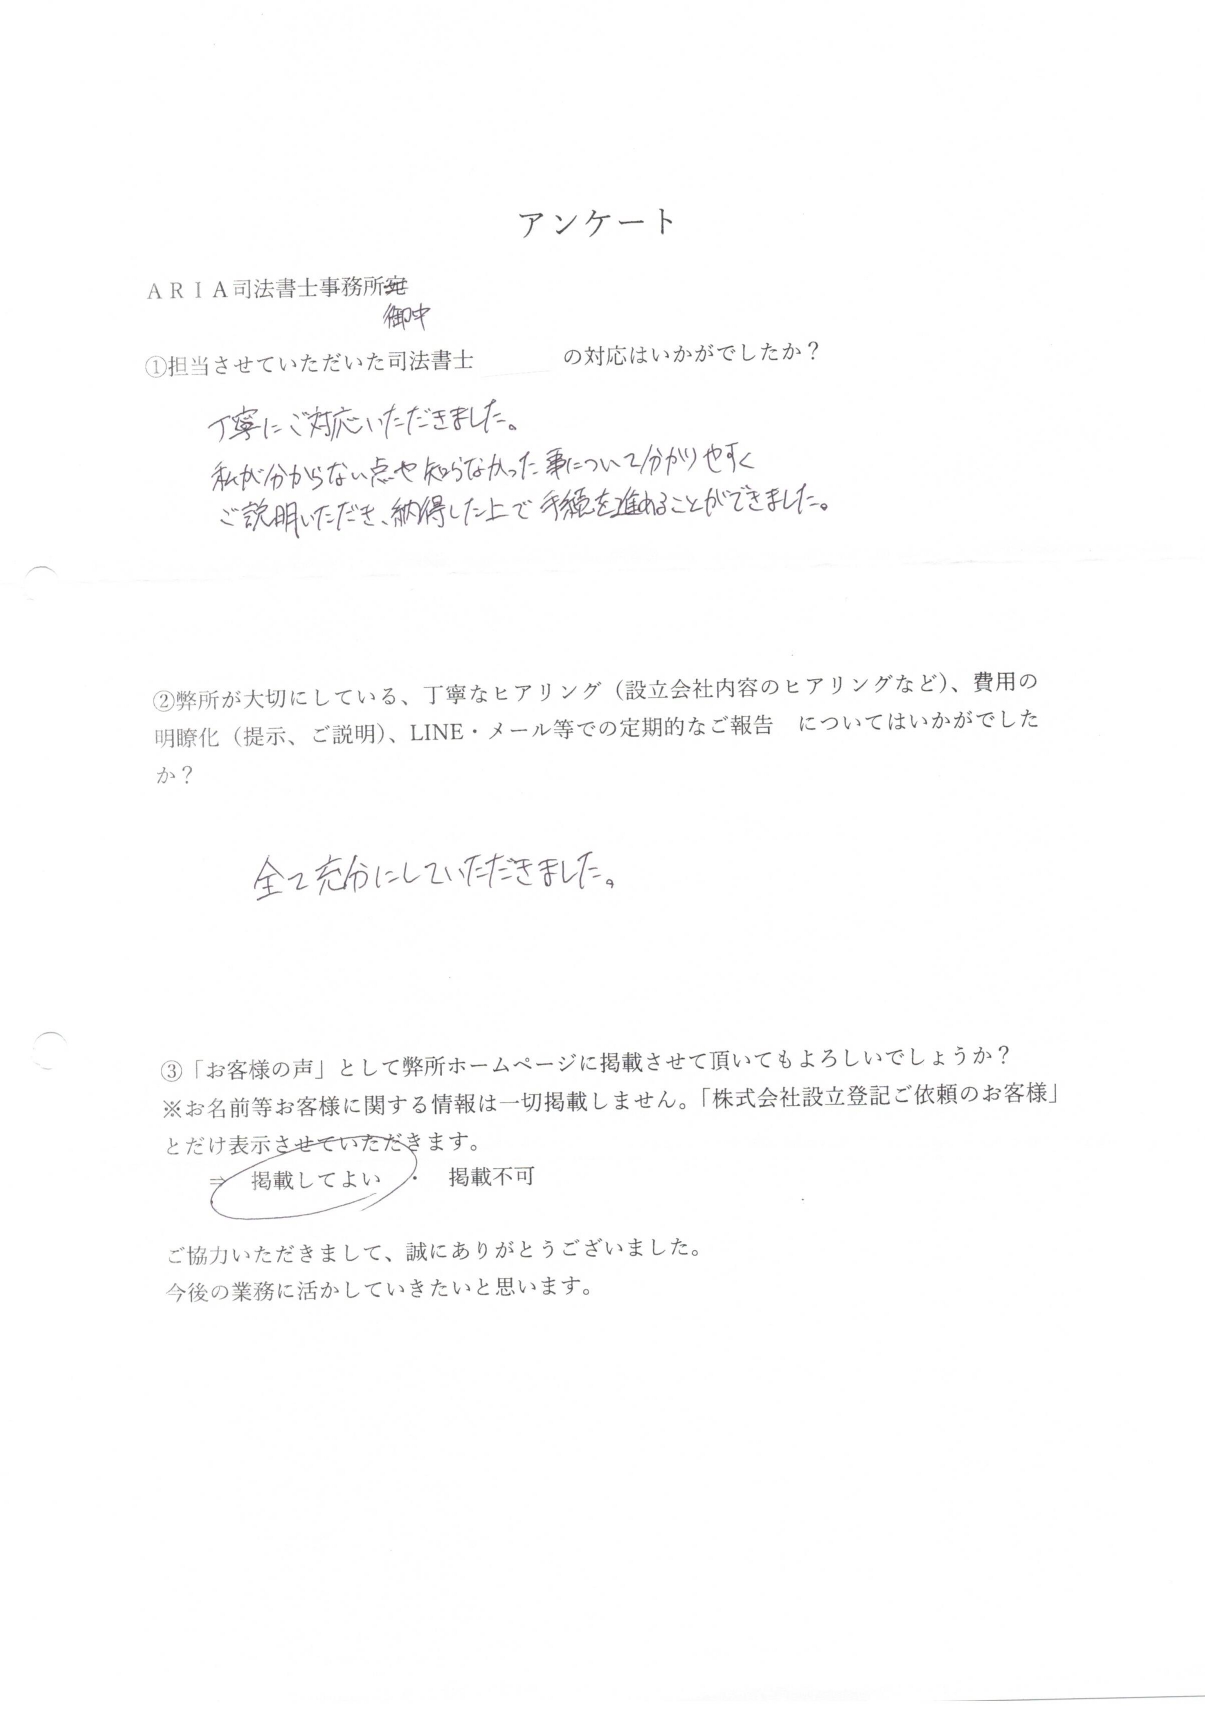 アンケート
ARIA司法書士事務所宛
御中
①担当させていただいた司法書士　　　の対応はいかがでしたか？
丁寧にご対応いただきました。
私が分からない点や知らなかった事について分かりやすく
ご説明いただき、納得した上で手続を進めることができました。
②弊所が大切にしている、丁寧なヒアリング（設立会社内容のヒアリングなど）、費用の
明瞭化（提示、ご説明）、LINE・メール等での定期的なご報告　についてはいかがでした
か？
全て充分にしていただきました。
③「お客様の声」として弊所ホームページに掲載させて頂いてもよろしいでしょうか？
※お名前等お客様に関する情報は一切掲載しません。「株式会社設立登記ご依頼のお客様」
とだけ表示させていただきます。
⇒　掲載してよい　・　掲載不可
ご協力いただきまして、誠にありがとうございました。
今後の業務に活かしていきたいと思います。